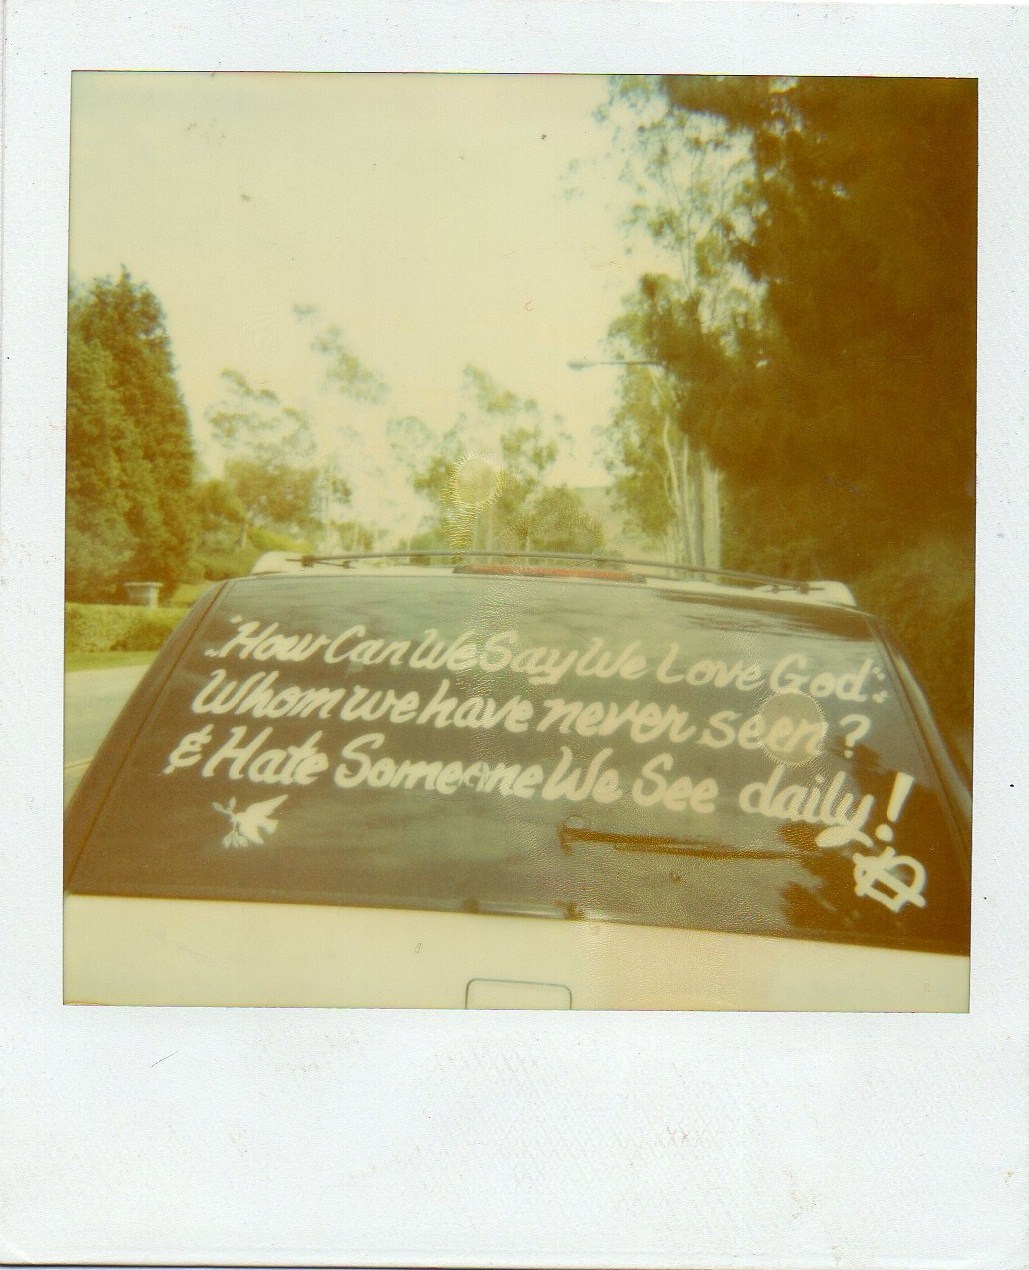 "How Can We Say We Love God":
Whom we have never seen?
& Hate Someone We See daily!